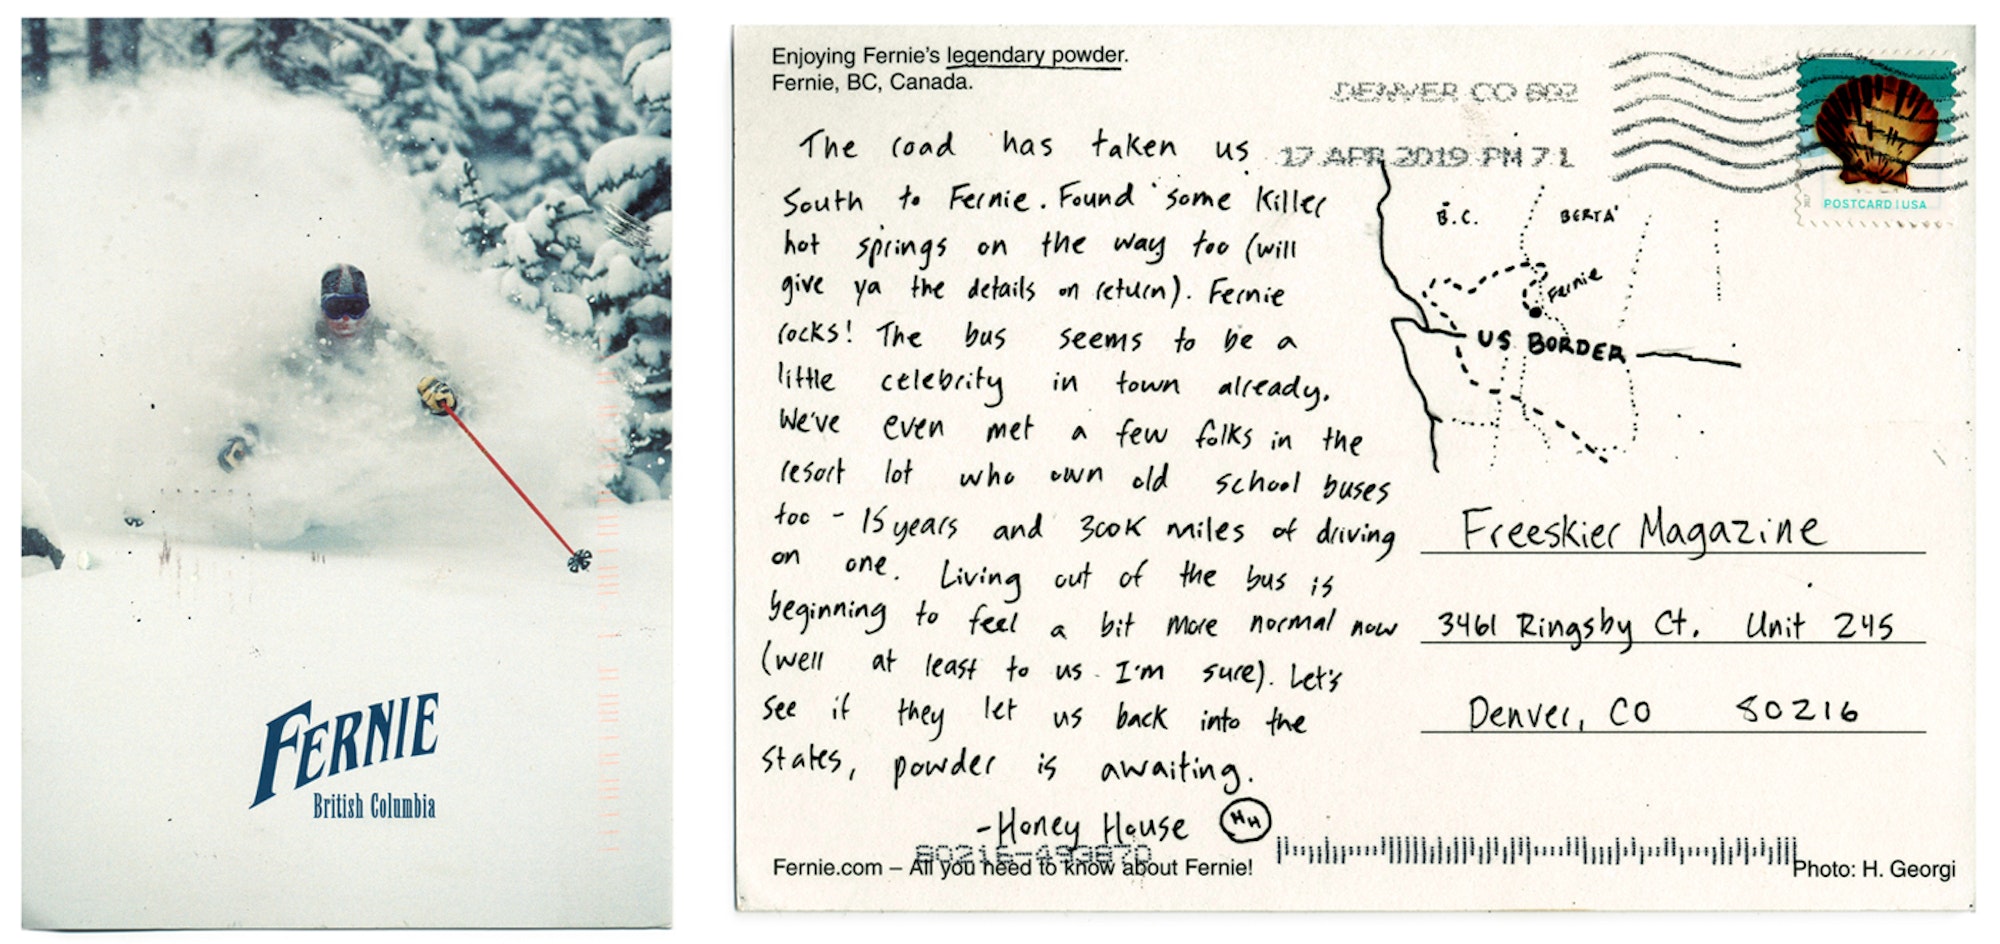 FERNIE
British Columbia
Enjoying Fernie's legendary powder.
Fernie, BC, Canada.
DENVER CO 802
17 APR 2019 PM 7 L
POSTCARD | USA
The road has taken us
South to Fernie. Found some Killer
hot springs on the way too (will
give ya the details on return). Fernie
rocks! The bus seems to be a
little celebrity in town already.
We've even met a few folks in the
resort lot who own old school buses
too - 15 years and 300K miles of driving
on one. Living out of the bus is
beginning to feel a bit more normal now
(well at least to us I'm sure). Let's
see if they let us back into the
states, powder is awaiting.
-Honey House HH
B.C.
BERTA'
Fernie
US BORDER
Freeskier Magazine
3461 Ringsby Ct. Unit 245
Denver, CO 80216
80216-493870
Fernie.com – All you need to know about Fernie!
Photo: H. Georgi